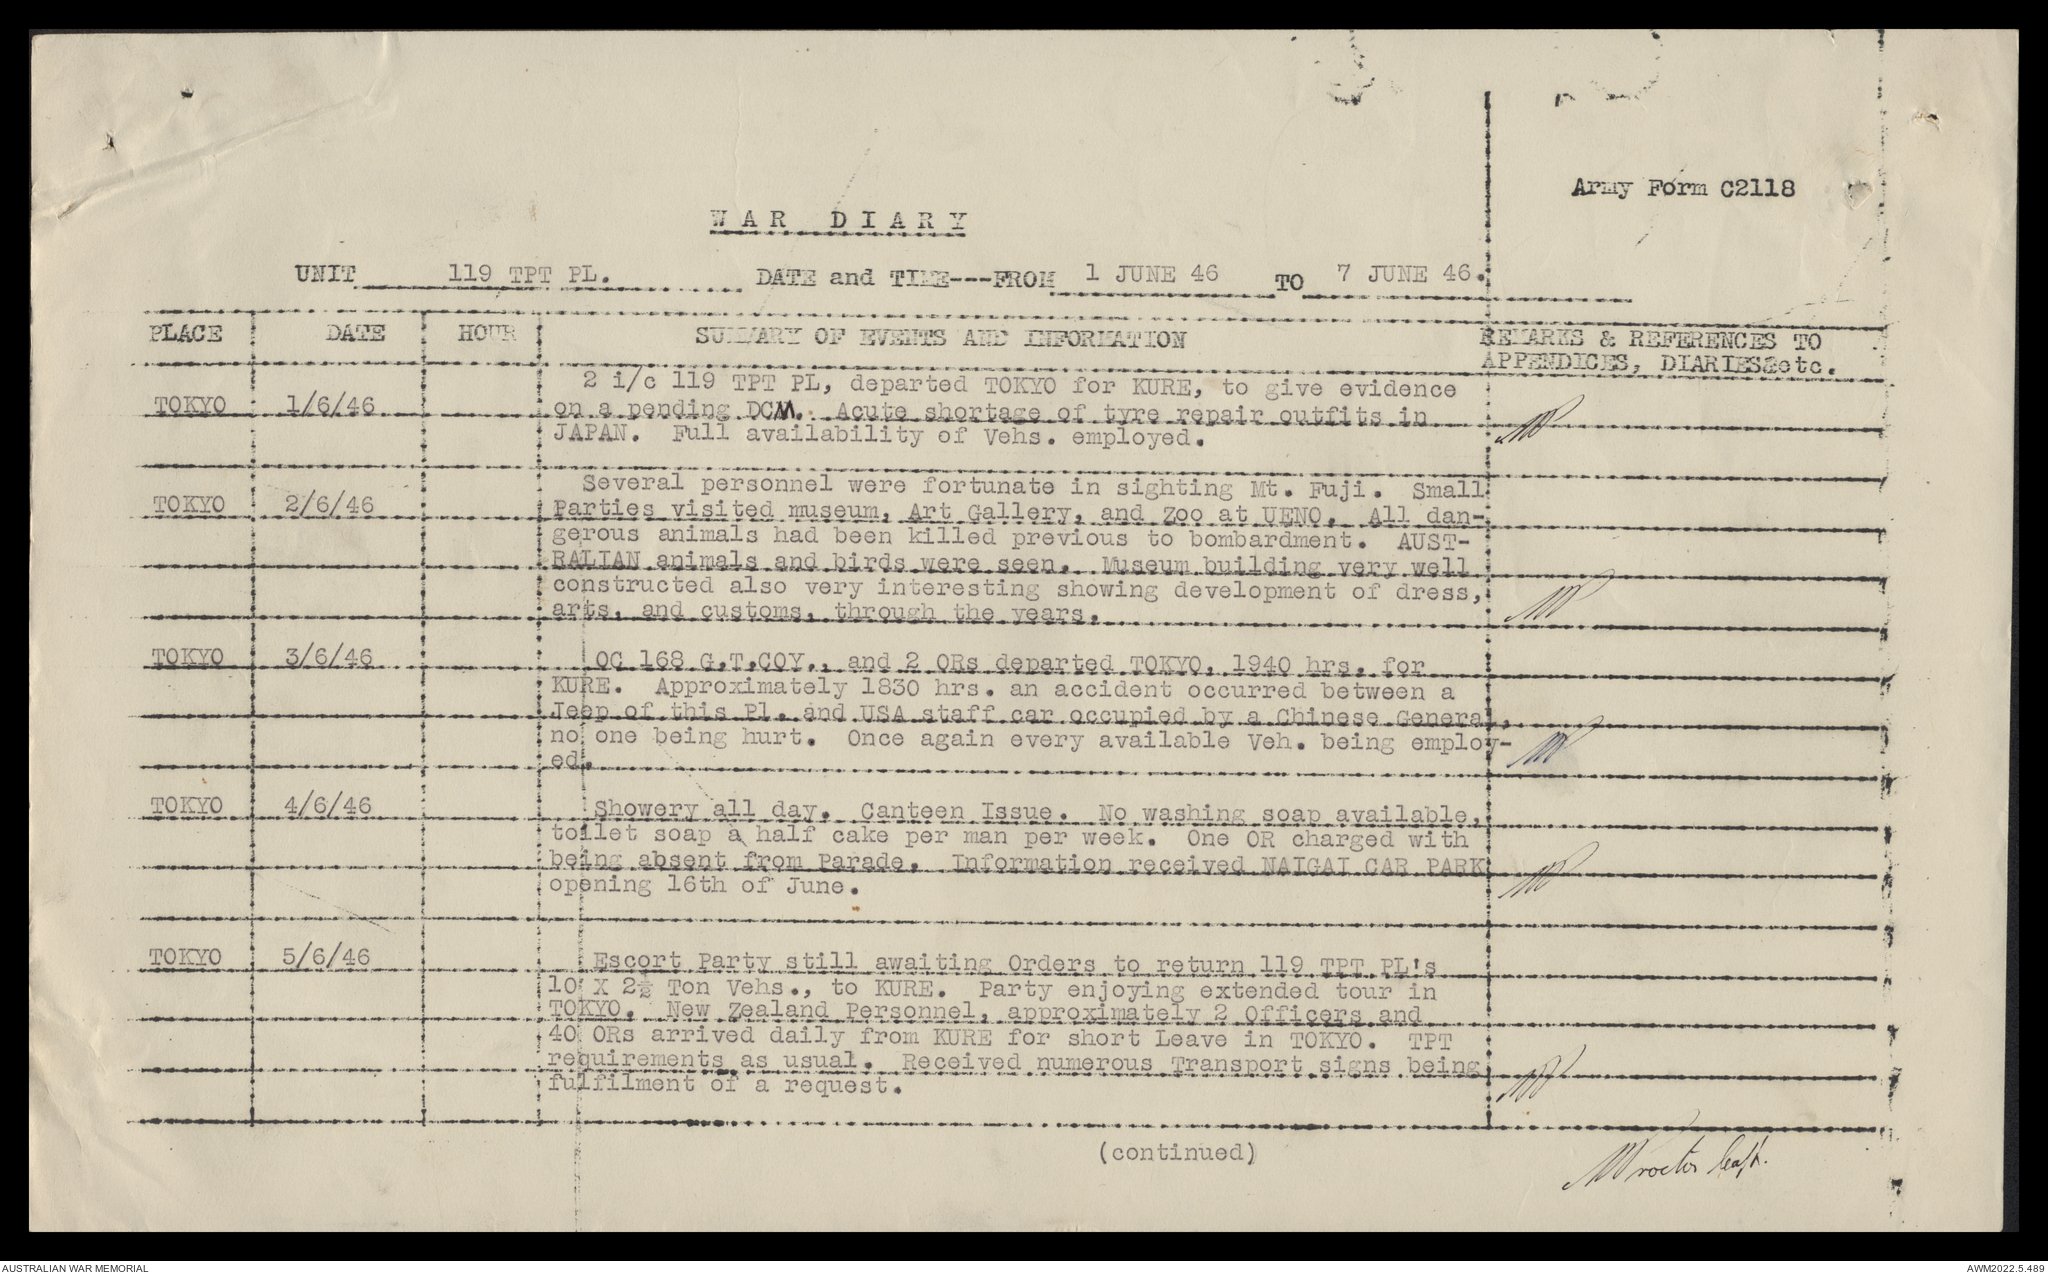 Army Form C2118
WAR DIARY
UNIT 119 TPT PL. DATE and TIME---FROM 1 JUNE 46 TO 7 JUNE 46.
PLACE DATE HOUR SUMMARY OF EVENTS AND INFORMATION REMARKS & REFERENCES TO
APPENDICES, DIARIES etc.
2 i/c 119 TPT PL, departed TOKYO for KURE, to give evidence
TOKYO 1/6/46 on a pending DCM. Acute shortage of tyre repair outfits in
JAPAN. Full availability of Vehs. employed.
Several personnel were fortunate in sighting Mt. Fuji. Small
TOKYO 2/6/46 Parties visited museum, Art Gallery, and Zoo at UENO. All dan-
gerous animals had been killed previous to bombardment. AUST-
RALIAN animals and birds were seen. Museum building very well
constructed also very interesting showing development of dress,
arts, and customs, through the years.
TOKYO 3/6/46 OC 168 G.T.COY., and 2 ORs departed TOKYO, 1940 hrs. for
KURE. Approximately 1830 hrs. an accident occurred between a
Jeep of this Pl. and USA staff car occupied by a Chinese General,
no one being hurt. Once again every available Veh. being employ-
ed.
TOKYO 4/6/46 Showery all day. Canteen Issue. No washing soap available,
toilet soap a half cake per man per week. One OR charged with
being absent from Parade. Information received NAIGAI CAR PARK
opening 16th of June.
TOKYO 5/6/46 Escort Party still awaiting Orders to return 119 TPT PL's
10 X 2½ Ton Vehs., to KURE. Party enjoying extended tour in
TOKYO. New Zealand Personnel, approximately 2 Officers and
40 ORs arrived daily from KURE for short Leave in TOKYO. TPT
requirements as usual. Received numerous Transport signs being
fulfilment of a request.
(continued)
Proctor Capt.
AUSTRALIAN WAR MEMORIAL AWM2022.5.489